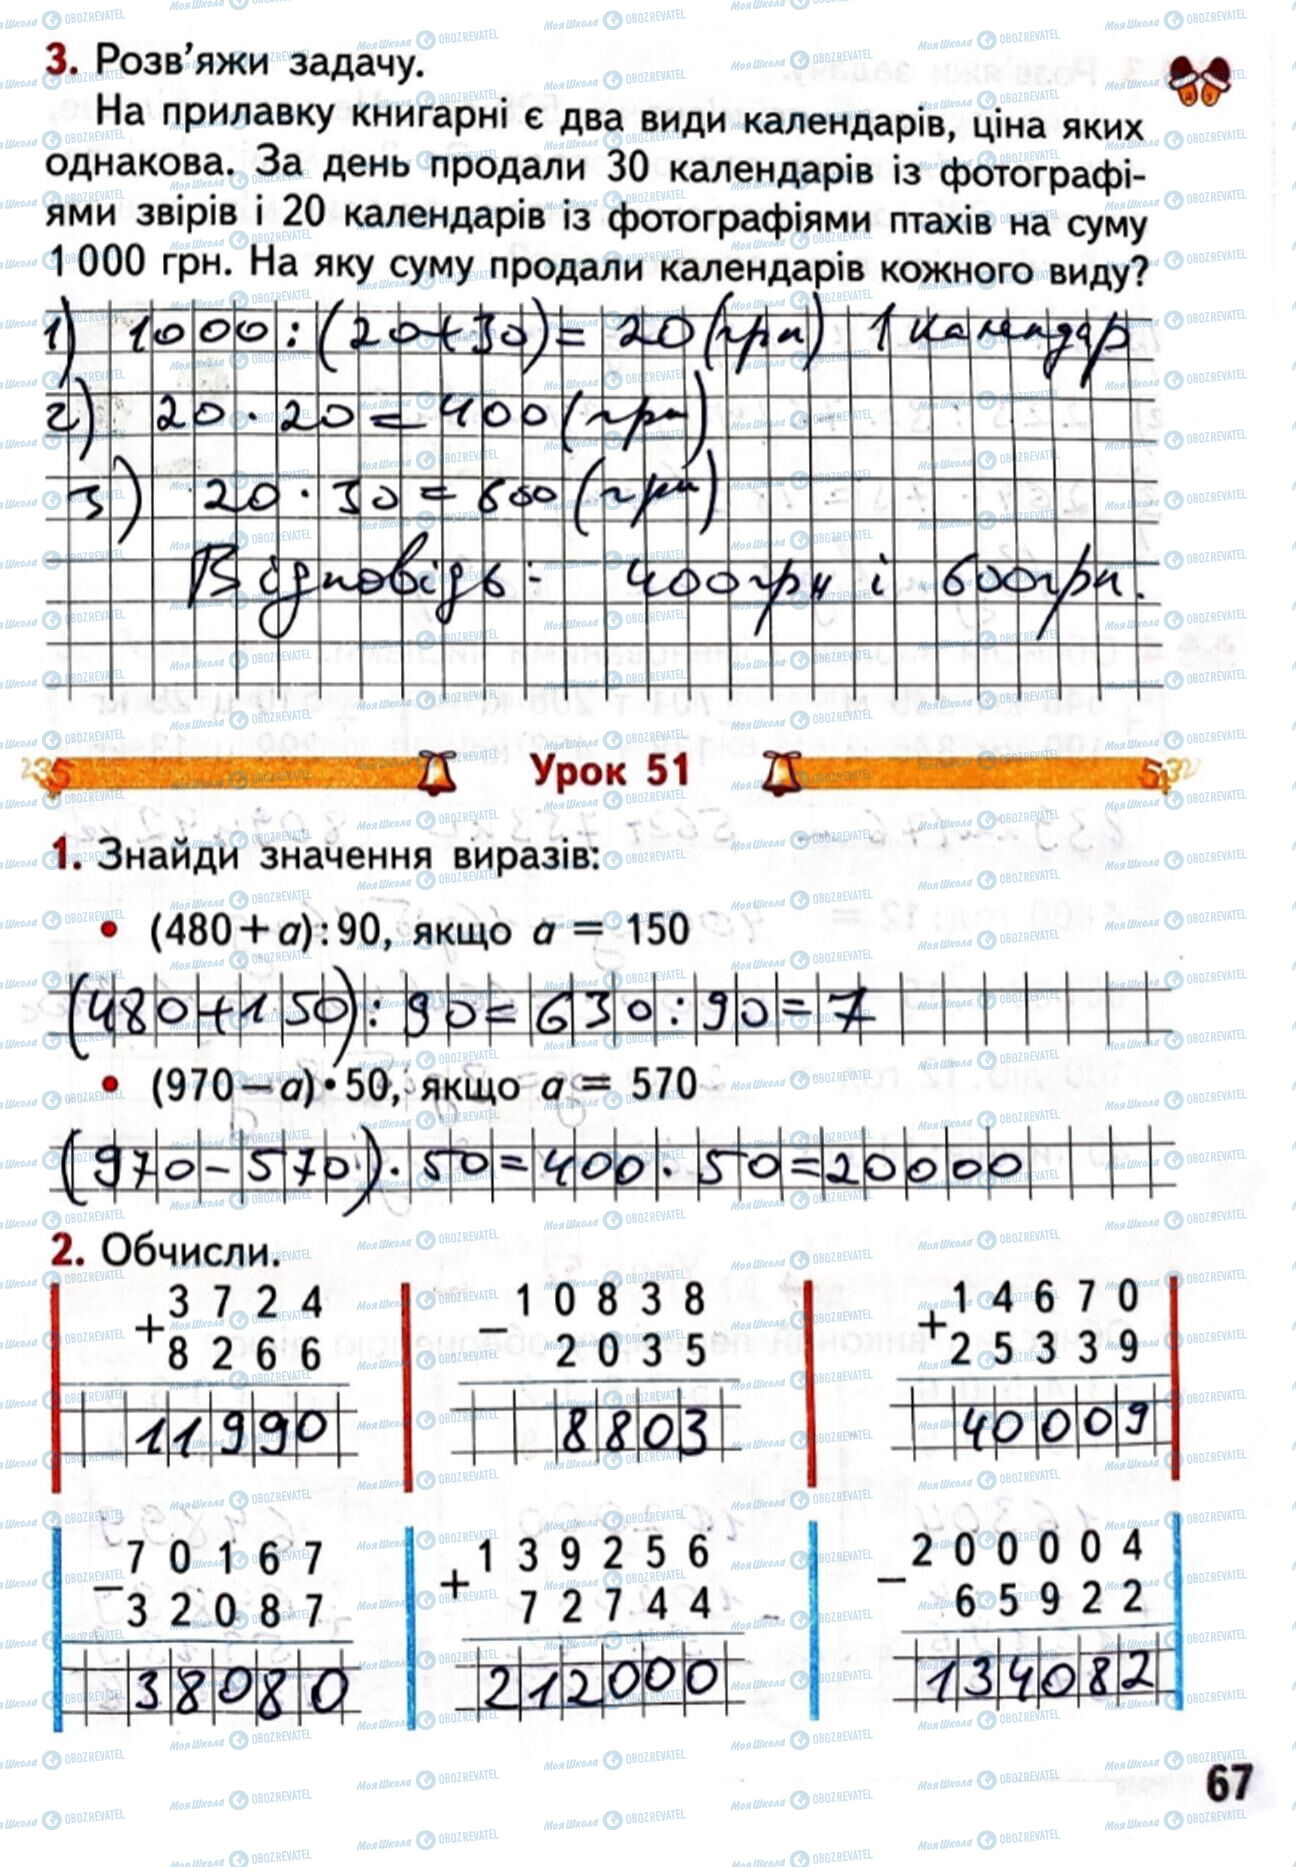 3. Розв'яжи задачу.
На прилавку книгарні є два види календарів, ціна яких
однакова. За день продали 30 календарів із фотографі-
ями звірів і 20 календарів із фотографіями птахів на суму
1 000 грн. На яку суму продали календарів кожного виду?
1) 1000 : (20+30) = 20 (грн) 1 календар
2) 20 · 20 = 400 (грн)
3) 20 · 30 = 600 (грн)
Відповідь: 400 грн і 600 грн.
Урок 51
1. Знайди значення виразів:
• (480+a):90, якщо a = 150
(480+150) : 90 = 630 : 90 = 7
• (970−a)•50, якщо a = 570
(970−570) · 50 = 400 · 50 = 20000
2. Обчисли.
3 7 2 4
+
8 2 6 6
11990
1 0 8 3 8
−
2 0 3 5
8803
1 4 6 7 0
+
2 5 3 3 9
40009
7 0 1 6 7
−
3 2 0 8 7
38080
1 3 9 2 5 6
+
7 2 7 4 4
212000
2 0 0 0 0 4
−
6 5 9 2 2
134082
67
МояШкола OBOZREVATEL